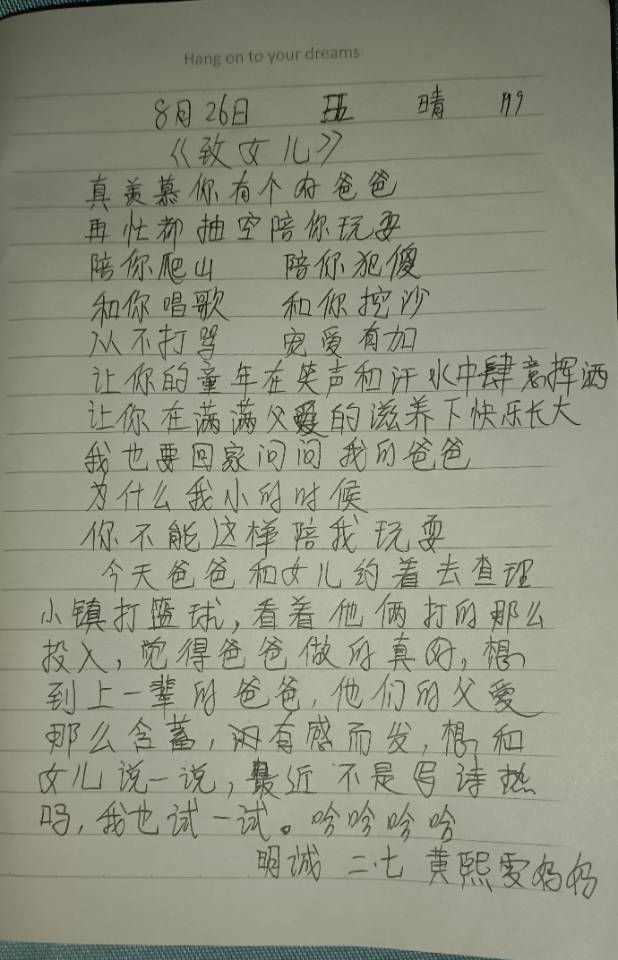 Hang on to your dreams
8月26日 五 晴
《致女儿》
真羡慕你有个好爸爸
再忙都抽空陪你玩耍
陪你爬山 陪你犯傻
和你唱歌 和你挖沙
从不打骂 宠爱有加
让你的童年在笑声和汗水中肆意挥洒
让你在满满父爱的滋养下快乐长大
我也要回家问问我的爸爸
为什么我小的时候
你不能这样陪我玩耍
今天爸爸和女儿约着去查理
小镇打篮球,看着他俩打的那么
投入,觉得爸爸做的真好,想
到上一辈的爸爸,他们的父爱
那么含蓄,有感而发,想和
女儿说一说,最近不是写诗热
吗,我也试一试。哈哈哈哈
明诚 二.七 黄熙雯妈妈